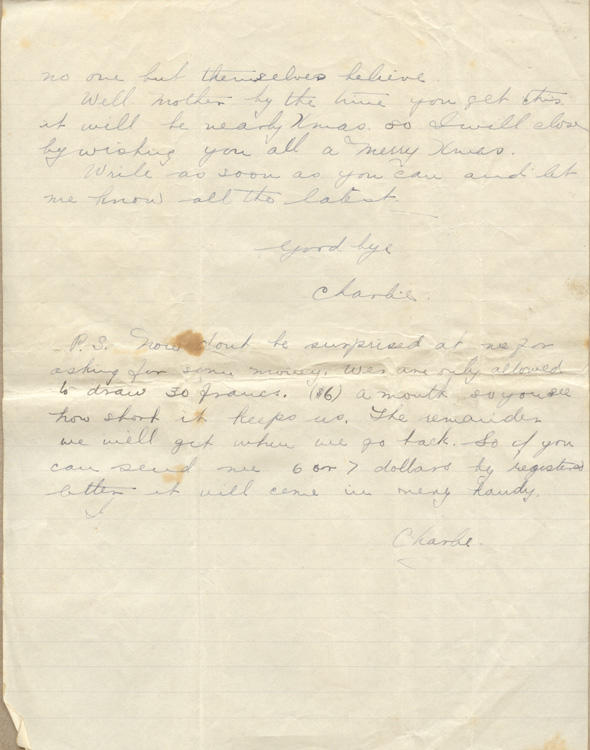 no one but themselves believe.
Well mother by the time you get this
it will be nearly Xmas. so I will close
by wishing you all a Merry Xmas.
Write as soon as you can and let
me know all the latest
Good bye
Charlie.
P.S. Now dont be surprised at me for
asking for some money. We are only allowed
to draw 30 francs. ($6) a month so you see
how short it keeps us. The remainder
we will get when we go back. So if you
can send me 6 or 7 dollars by registered
letter it will come in very handy.
Charlie.